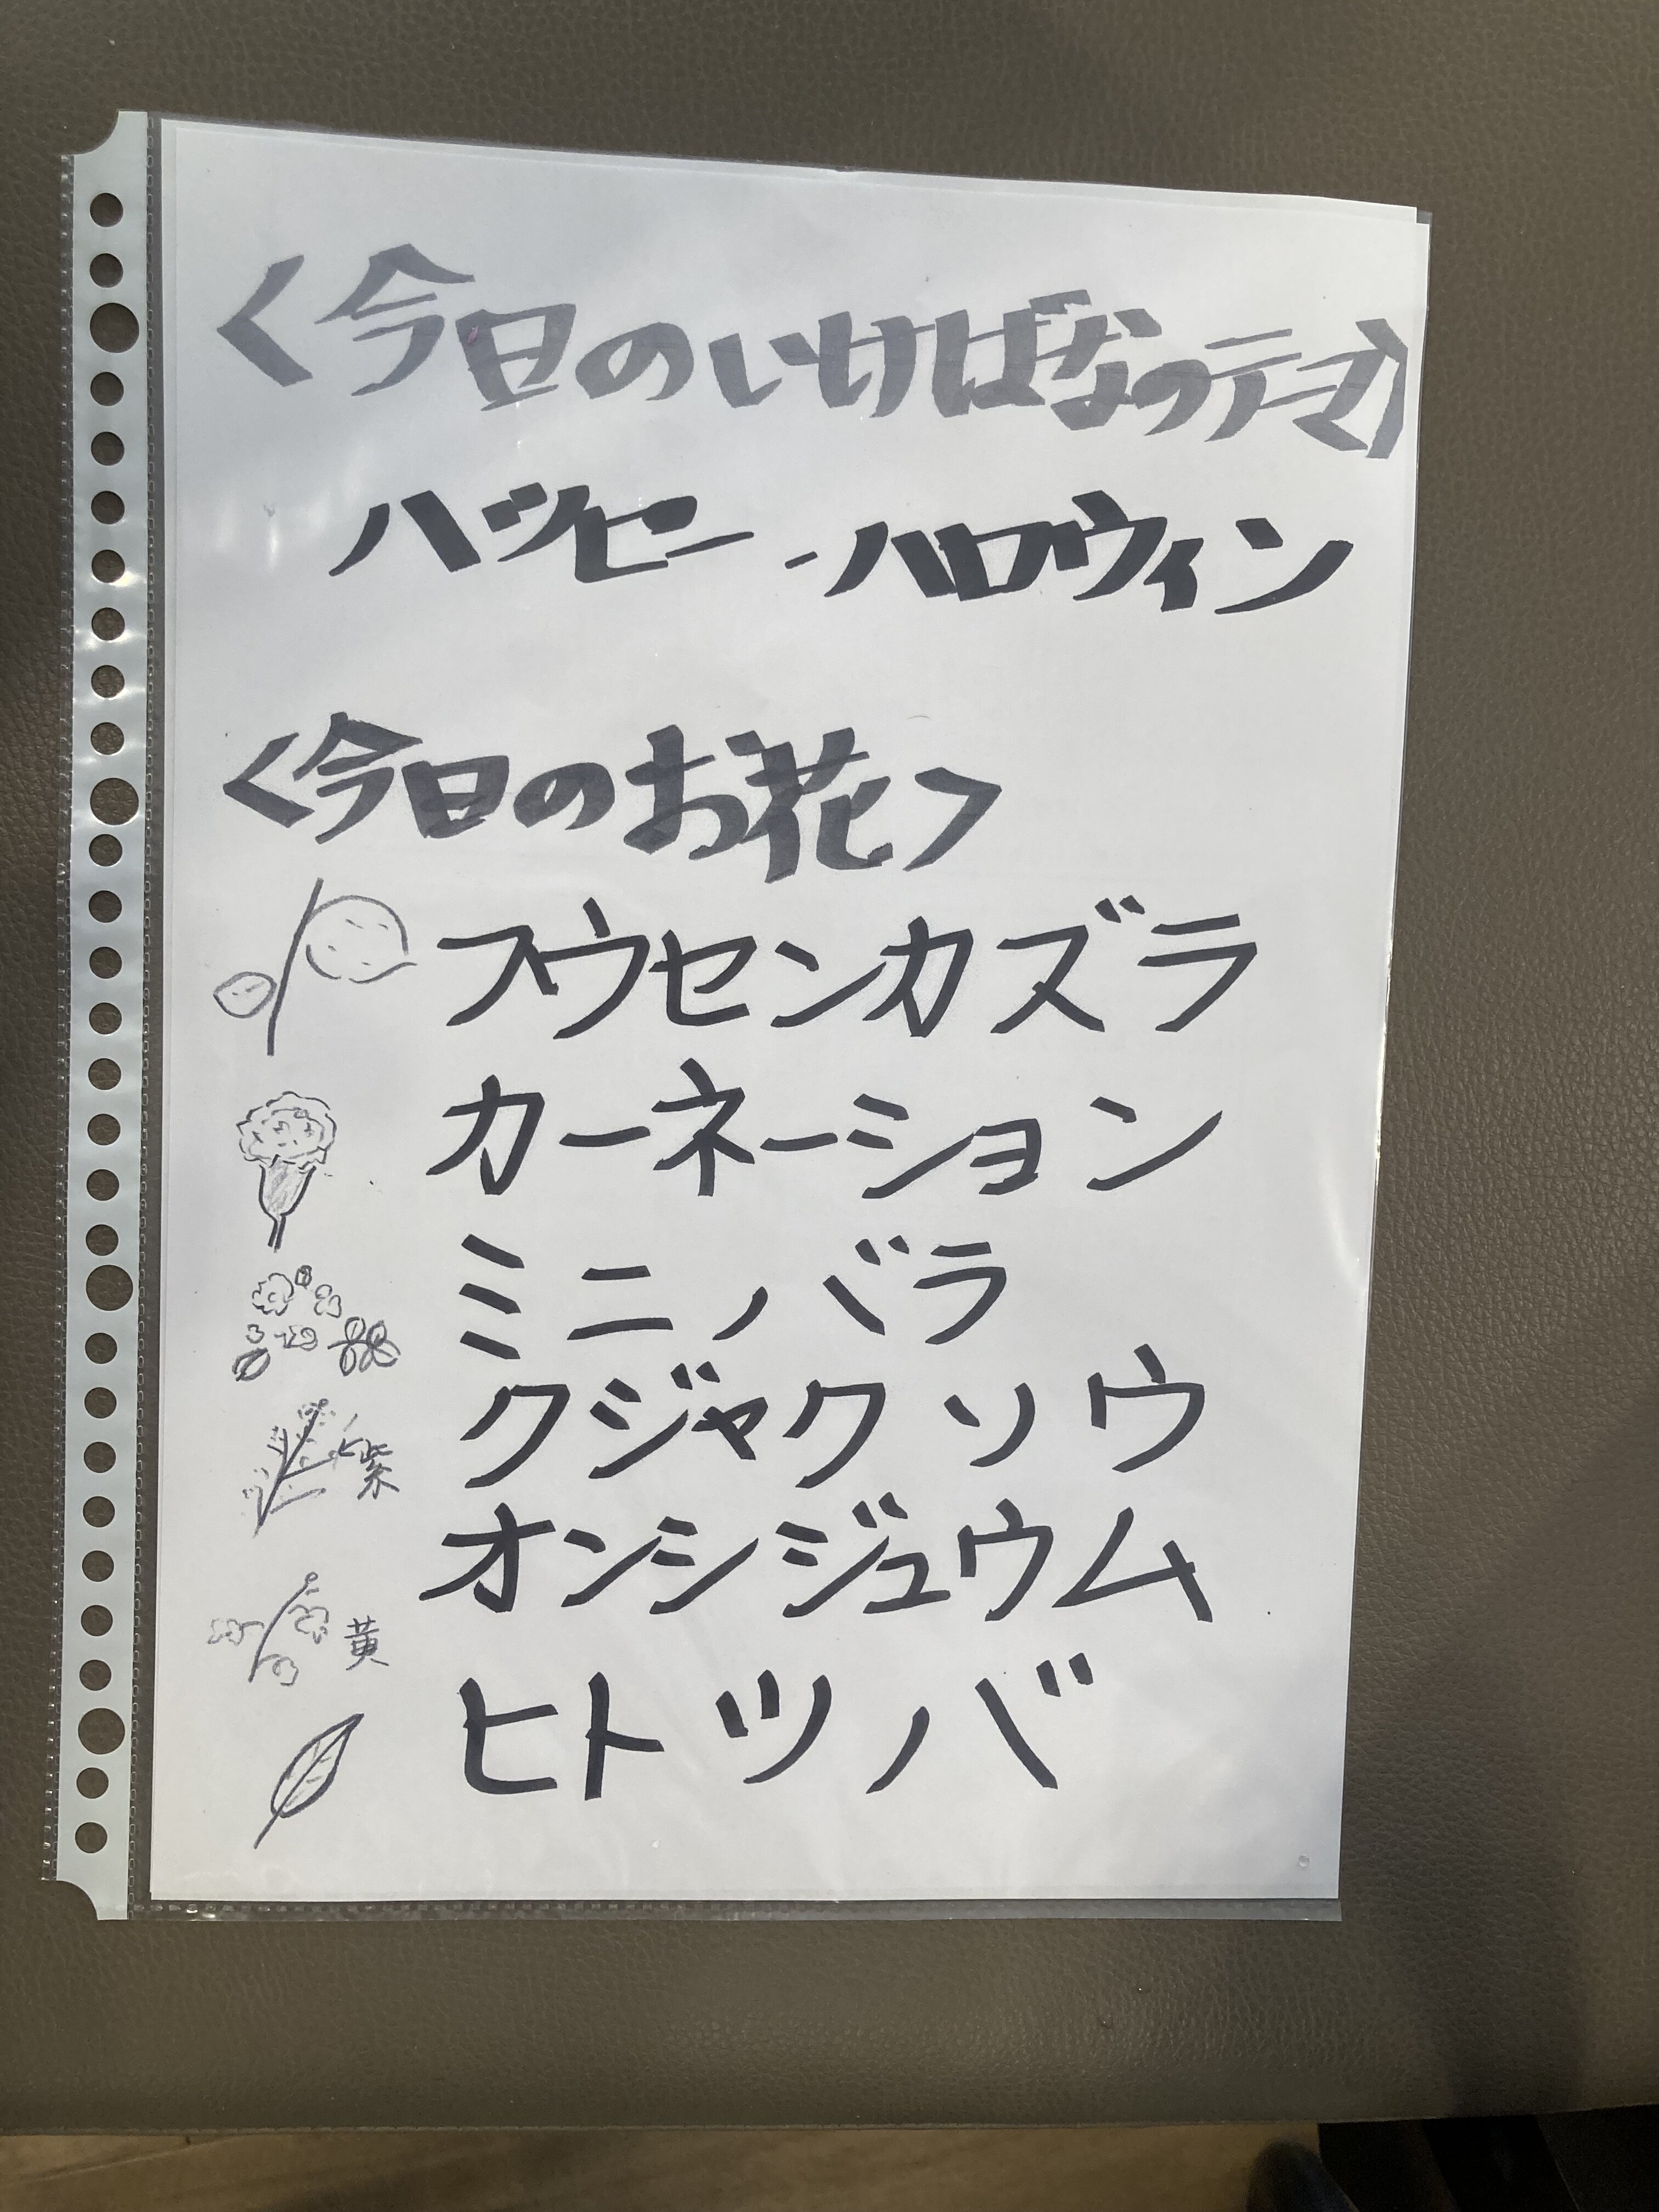 <今日のいけばなのテーマ>
ハッピー・ハロウィン
<今日のお花>
フウセンカズラ
カーネーション
ミニバラ
クジャクソウ
紫
オンシジュウム
黄
ヒトツバ